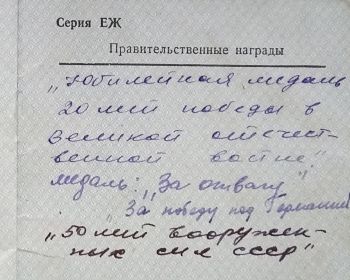 Серия ЕЖ
Правительственные награды
„Юбилейная медаль
20 лет победы в
Великой отечест-
венной войне".
медаль: „За отвагу"
„За победу под Германией
„50 лет вооружен-
ных сил СССР"